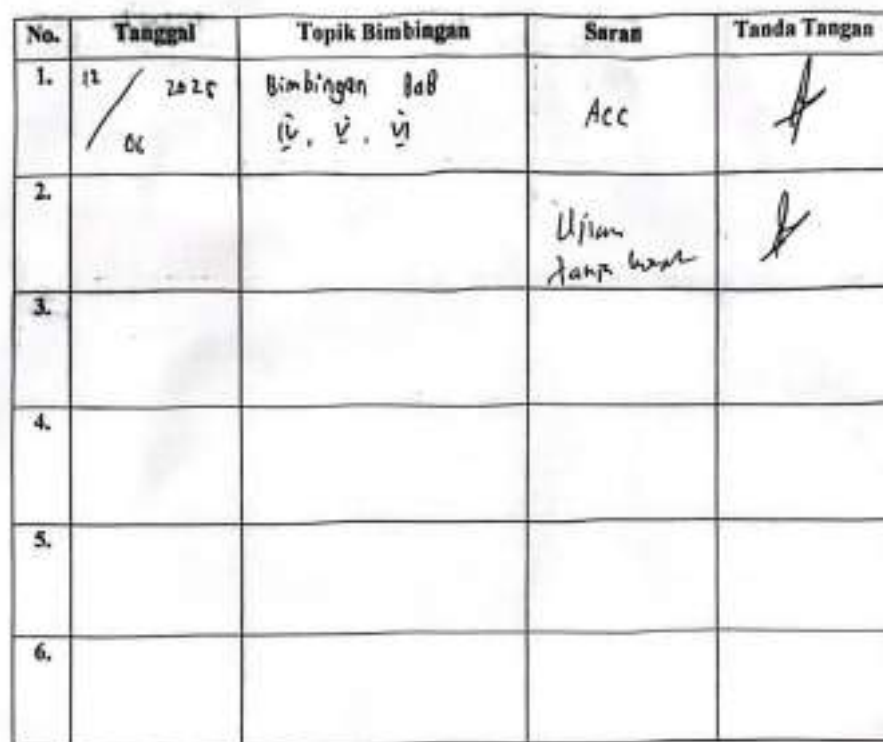 No. Tanggal Topik Bimbingan Saran Tanda Tangan
1. 12 / 2025 Bimbingan Bab Acc
06 IV, V, VI
2. Ujian
3.
4.
5.
6.